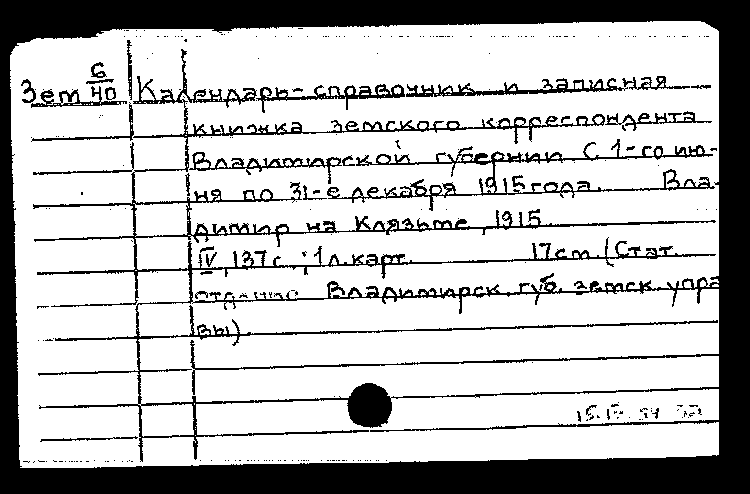 Зем 6/40 Календарь-справочник и записная
книжка земского корреспондента
Владимирской губернии С 1-го ию-
ня по 31-е декабря 1915 года. Вла-
димир на Клязьме, 1915.
IV, 137 с.; 1 л. карт. 17 см. (Стат.
отд-ние Владимирск. губ. земск. упра
вы).